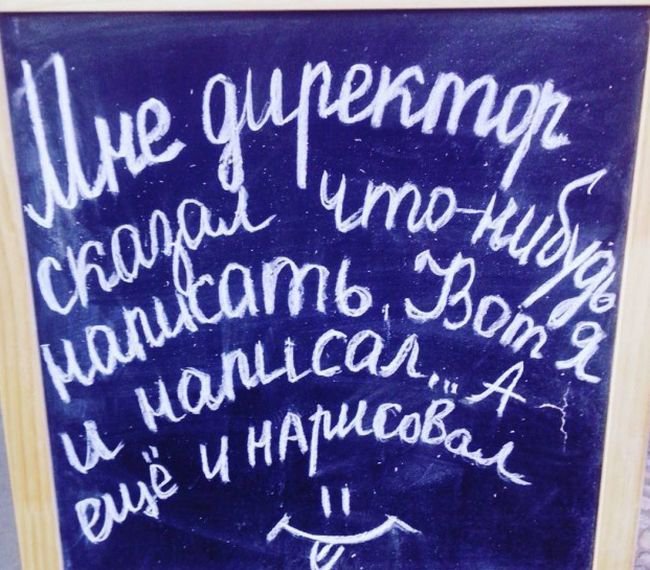 Мне директор
сказал что-нибудь
написать. Вот я
и написал... А
ещё и нарисовал